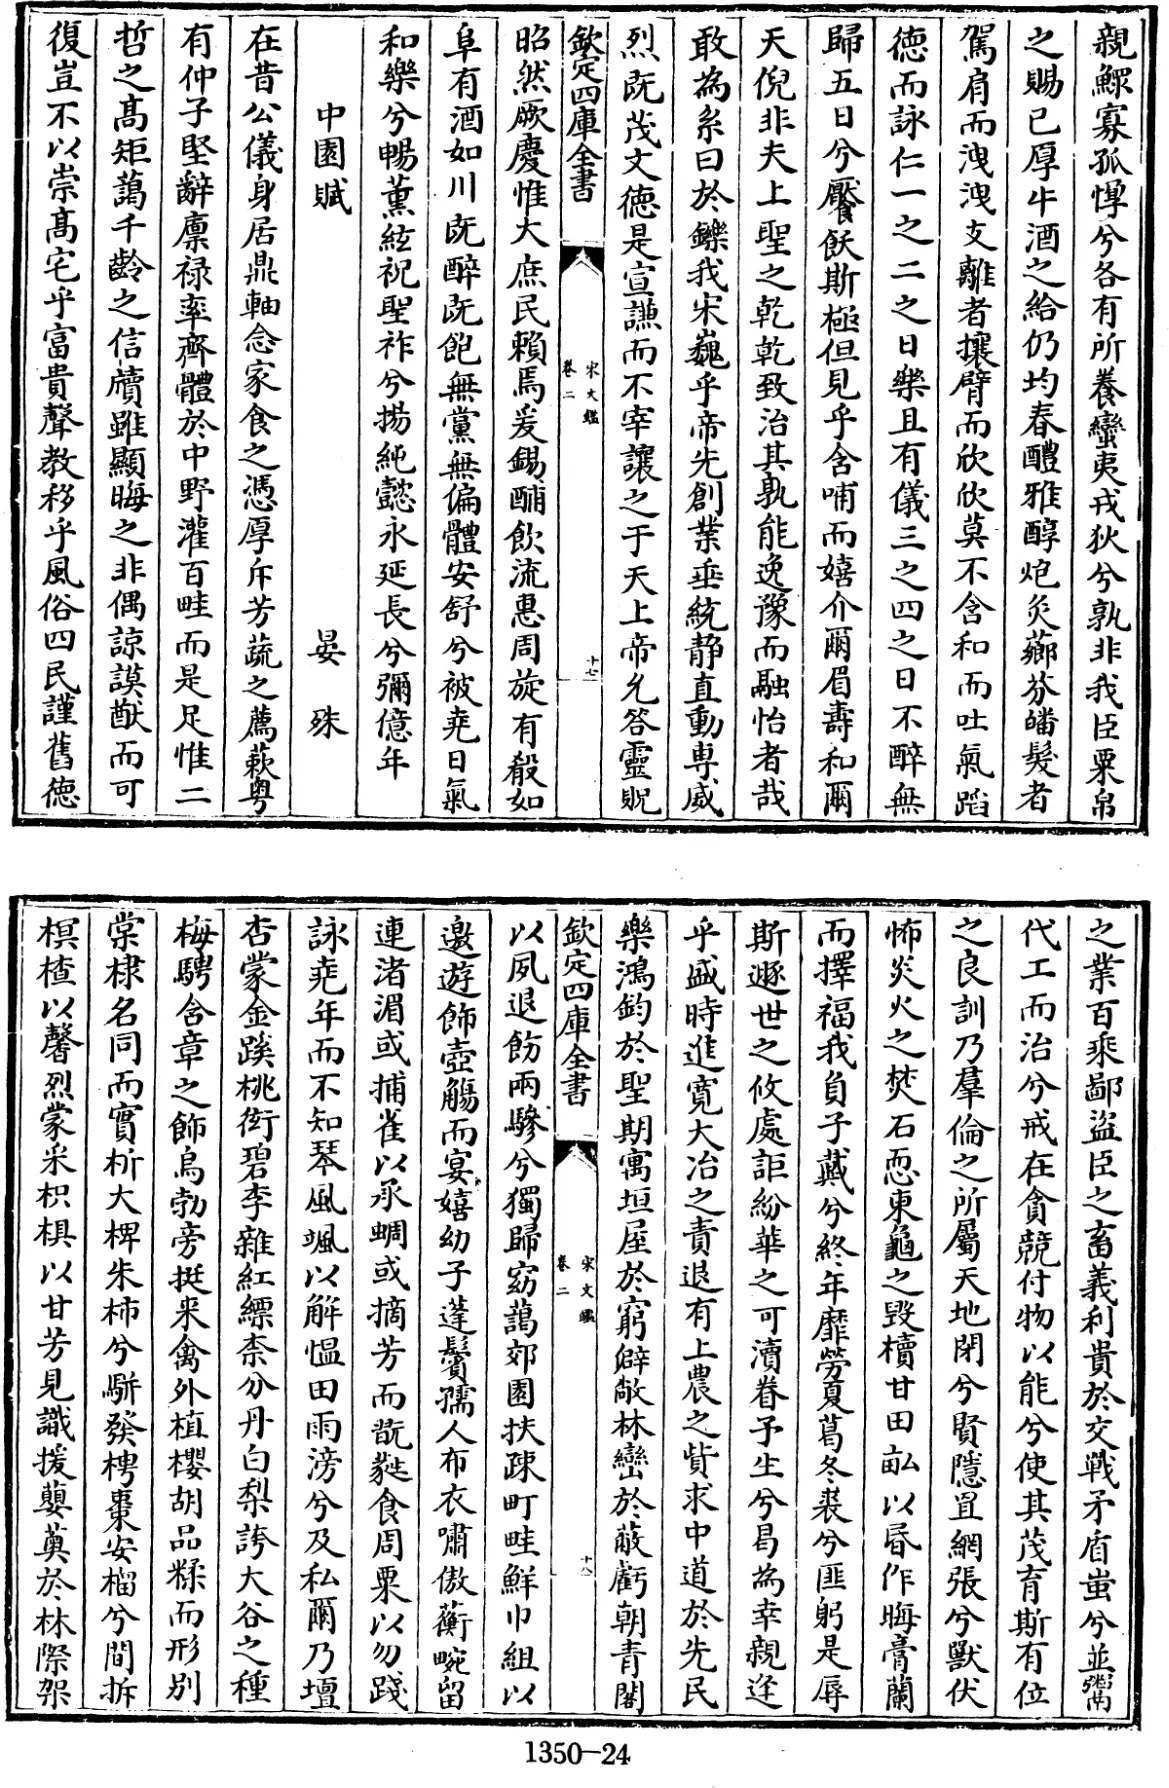 親鰥寡孤惸兮各有所養蠻夷戎狄兮孰非我臣粟帛
之賜已厚牛酒之給仍均春醴雅醇炮炙薌芬皤髮者
駕肩而洩洩支離者攘臂而欣欣莫不含和而吐氣蹈
德而詠仁一之二之日樂且有儀三之四之日不醉無
歸五日兮饜飫斯極但見乎含哺而嬉介爾眉壽和爾
天倪非夫上聖之乾乾致治其孰能逸豫而融怡者哉
敢為系曰於鑠我宋巍乎帝先創業垂統靜直動專威
烈既茂文德是宣謙而不宰讓之于天上帝允答靈貺
欽定四庫全書
宋文鑑
卷二
十七
昭然厥慶惟大庶民賴焉爰錫酺飲流惠周旋有殽如
阜有酒如川既醉既飽無黨無偏體安舒兮被堯日氣
和樂兮暢薰絃祝聖祚兮揚純懿永延長兮彌億年
中園賦
晏殊
在昔公儀身居鼎軸念家食之憑厚斥芳蔬之薦蔌粵
有仲子堅辭廩祿率齊體於中野灌百畦而是足惟二
哲之高矩藹千齡之信牘雖顯晦之非偶諒謨猷而可
復豈不以崇高宅乎富貴聲教移乎風俗四民謹舊德
之業百乘鄙盜臣之畜義利貴於交戰矛盾蚩兮並鬻
代工而治兮戒在貪競付物以能兮使其茂育斯有位
之良訓乃羣倫之所屬天地閉兮賢隱罝網張兮獸伏
怖炎火之焚石恧東龜之毀櫝甘田畝以昏作晦膏蘭
而擇福我負子戴兮終年靡勞夏葛冬裘兮匪躬是辱
斯遯世之攸處詎紛華之可瀆眷予生兮曷為幸親逢
乎盛時進寬大冶之責退有上農之貲求中道於先民
樂鴻鈞於聖期寓垣屋於窮僻敞林巒於蔽虧朝青閣
欽定四庫全書
宋文鑑
卷二
十八
以夙退飭兩驂兮獨歸窈藹郊園扶疎町畦鮮巾組以
遨遊飾壺觴而宴嬉幼子蓬鬢孺人布衣嘯傲蘅畹留
連渚湄或捕雀以承蜩或摘芳而翫蕤食周粟以勿踐
詠堯年而不知琴風颯以解慍田雨滂兮及私爾乃壇
杏蒙金蹊桃衒碧李雜紅縹柰分丹白梨誇大谷之種
梅騁含章之飾烏勃旁挺来禽外植櫻胡品糅而形別
棠棣名同而實析大椑朱柿兮駢發樗棗安榴兮間拆
榠楂以馨烈蒙采枳椇以甘芳見識援蘡薁於林際架
1350-24